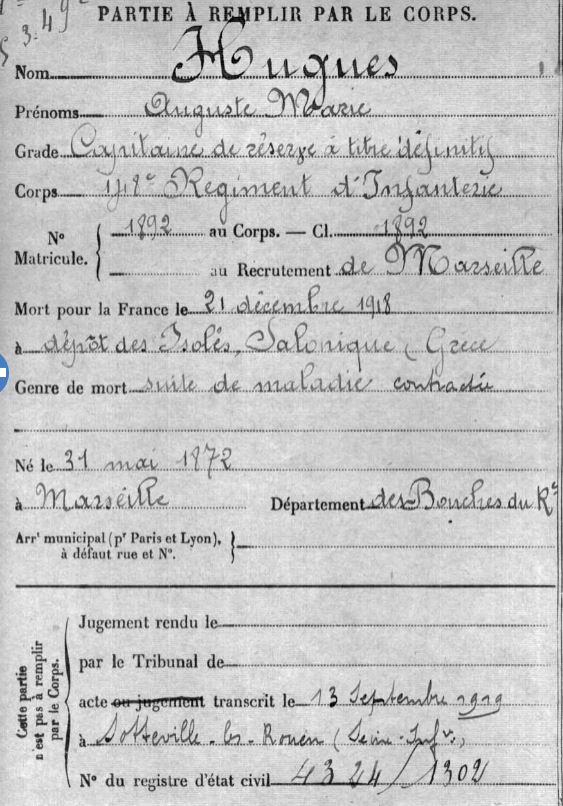 3.49
PARTIE À REMPLIR PAR LE CORPS.
Nom Hugues
Prénoms Auguste Marie
Grade Capitaine de réserve à titre définitif
Corps 148e Régiment d'Infanterie
N° Matricule. 1892 au Corps. — Cl. 1892
au Recrutement de Marseille
Mort pour la France le 21 décembre 1918
à dépôt des Isolés, Salonique (Grèce
Genre de mort suite de maladie contractée
Né le 31 mai 1872
à Marseille Département des Bouches du Re
Arrt municipal (pr Paris et Lyon),
à défaut rue et N°.
Cette partie
n'est pas à remplir
par le Corps.
Jugement rendu le
par le Tribunal de
acte ou jugement transcrit le 13 Septembre 1919
à Sotteville-les-Rouen (Seine-Infre)
N° du registre d'état civil 4324/1302